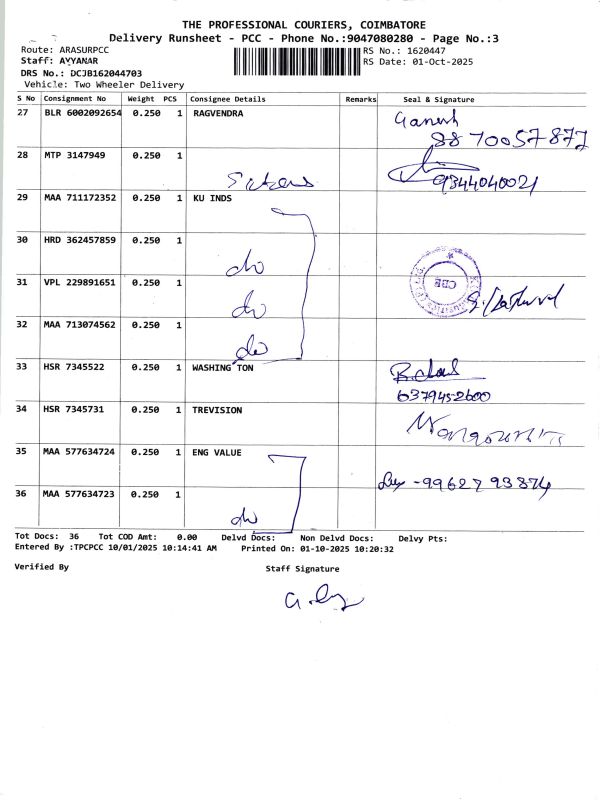 THE PROFESSIONAL COURIERS, COIMBATORE
Delivery Runsheet - PCC - Phone No.:9047080280 - Page No.:3
Route: ARASURPCC
RS No.: 1620447
Staff: AYYANAR
RS Date: 01-Oct-2025
DRS No.: DCJB162044703
Vehicle: Two Wheeler Delivery
S No Consignment No Weight PCS Consignee Details Remarks Seal & Signature
27 BLR 6002092654 0.250 1 RAGVENDRA Ganesh
88 70057877
28 MTP 3147949 0.250 1
9344040021
29 MAA 711172352 0.250 1 KU INDS
30 HRD 362457859 0.250 1
do
31 VPL 229891651 0.250 1
CBE
do
32 MAA 713074562 0.250 1
do
33 HSR 7345522 0.250 1 WASHING TON
6379452600
34 HSR 7345731 0.250 1 TREVISION
35 MAA 577634724 0.250 1 ENG VALUE
-9962793874
36 MAA 577634723 0.250 1
do
Tot Docs: 36 Tot COD Amt: 0.00 Delvd Docs: Non Delvd Docs: Delvy Pts:
Entered By :TPCPCC 10/01/2025 10:14:41 AM Printed On: 01-10-2025 10:20:32
Verified By Staff Signature